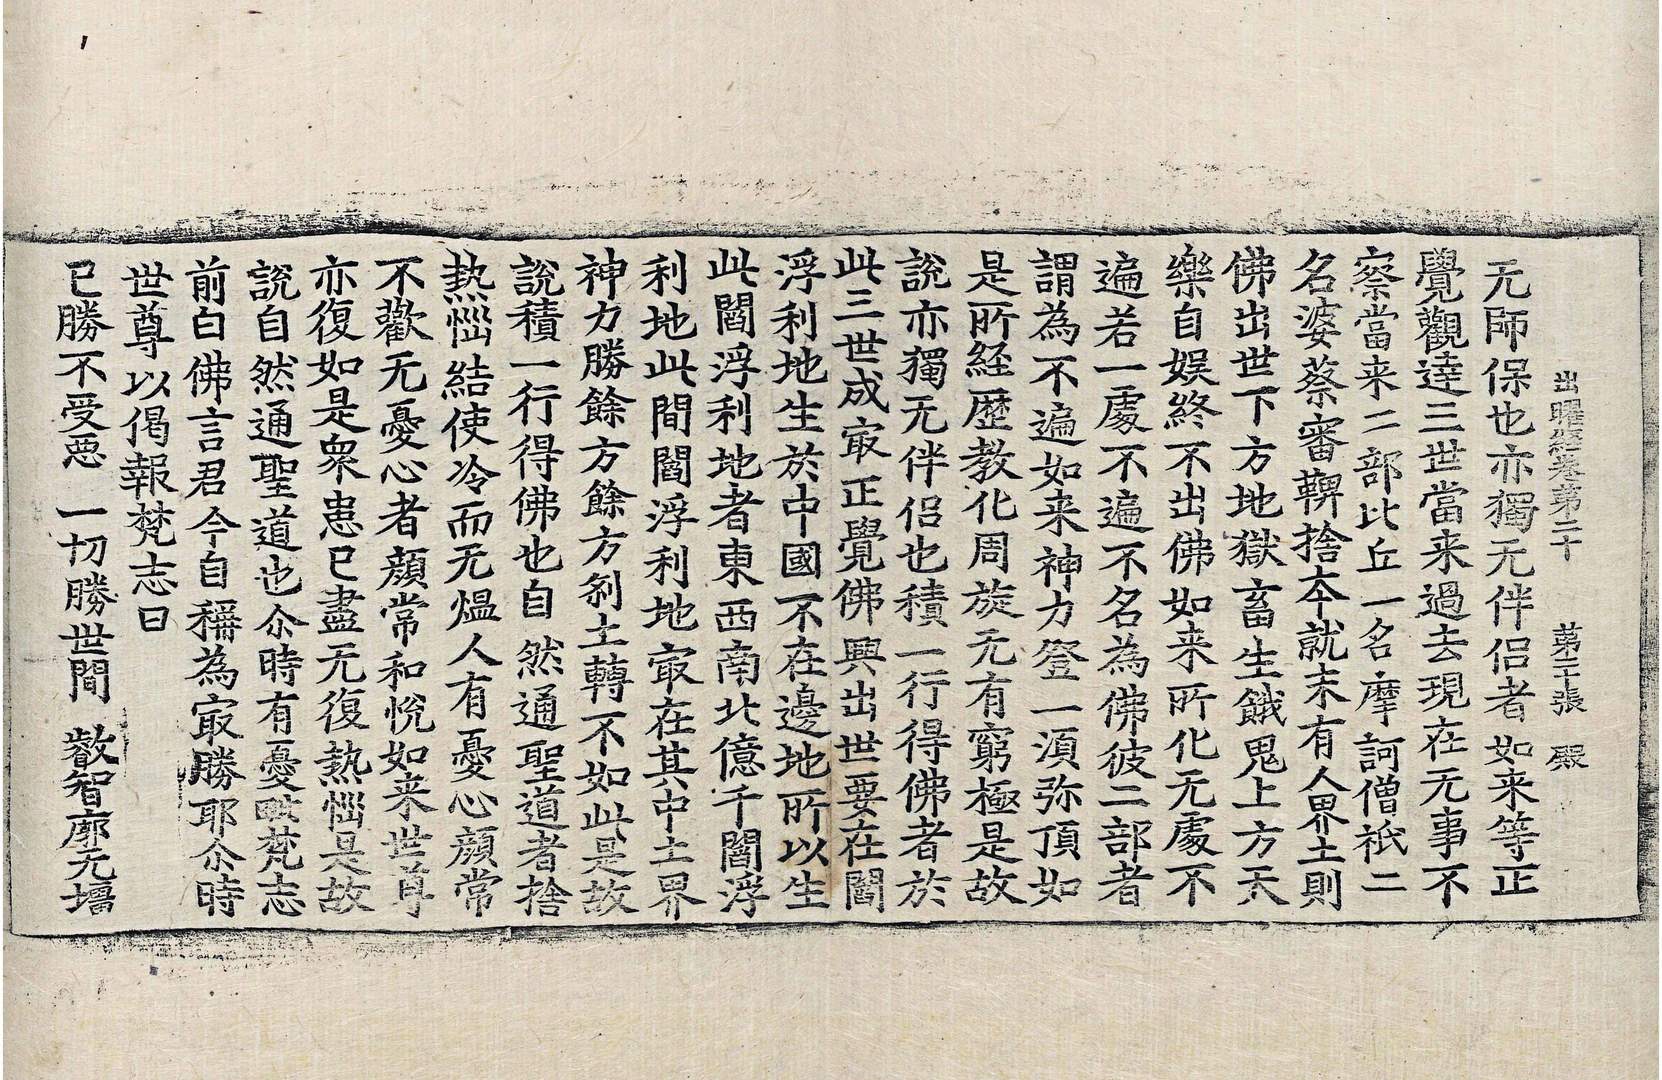 出曜經卷第二十 第二十張 殿
无師保也亦獨无伴侣者如来等正
覺觀達三世當来過去現在无事不
察當来二部比丘一名摩訶僧祇二
名婆蔡審鞞捨夲就末有人界土則
佛出世下方地獄畜生餓鬼上方天
樂自娱終不出佛如来所化无處不
遍若一處不遍不名為佛彼二部者
謂為不遍如来神力登一湏弥頂如
是所経歴教化周旋无有窮極是故
說亦獨无伴侣也積一行得佛者於
此三世成㝡正覺佛興出世要在閻
浮利地生於中國不在邊地所以生
此閻浮利地者東西南北億千閻浮
利地此間閻浮利地㝡在其中土界
神力勝餘方餘方剎土轉不如此是故
說積一行得佛也自然通聖道者捨
熱惱結使冷而无熅人有憂心顔常
不歡无憂心者顔常和悅如来世尊
亦復如是衆患已盡无復熱惱是故
說自然通聖道也尒時有憂毗梵志
前白佛言君今自稱為㝡勝耶尒時
世尊以偈報梵志曰
已勝不受惡 一切勝世間 叡智廓无壃